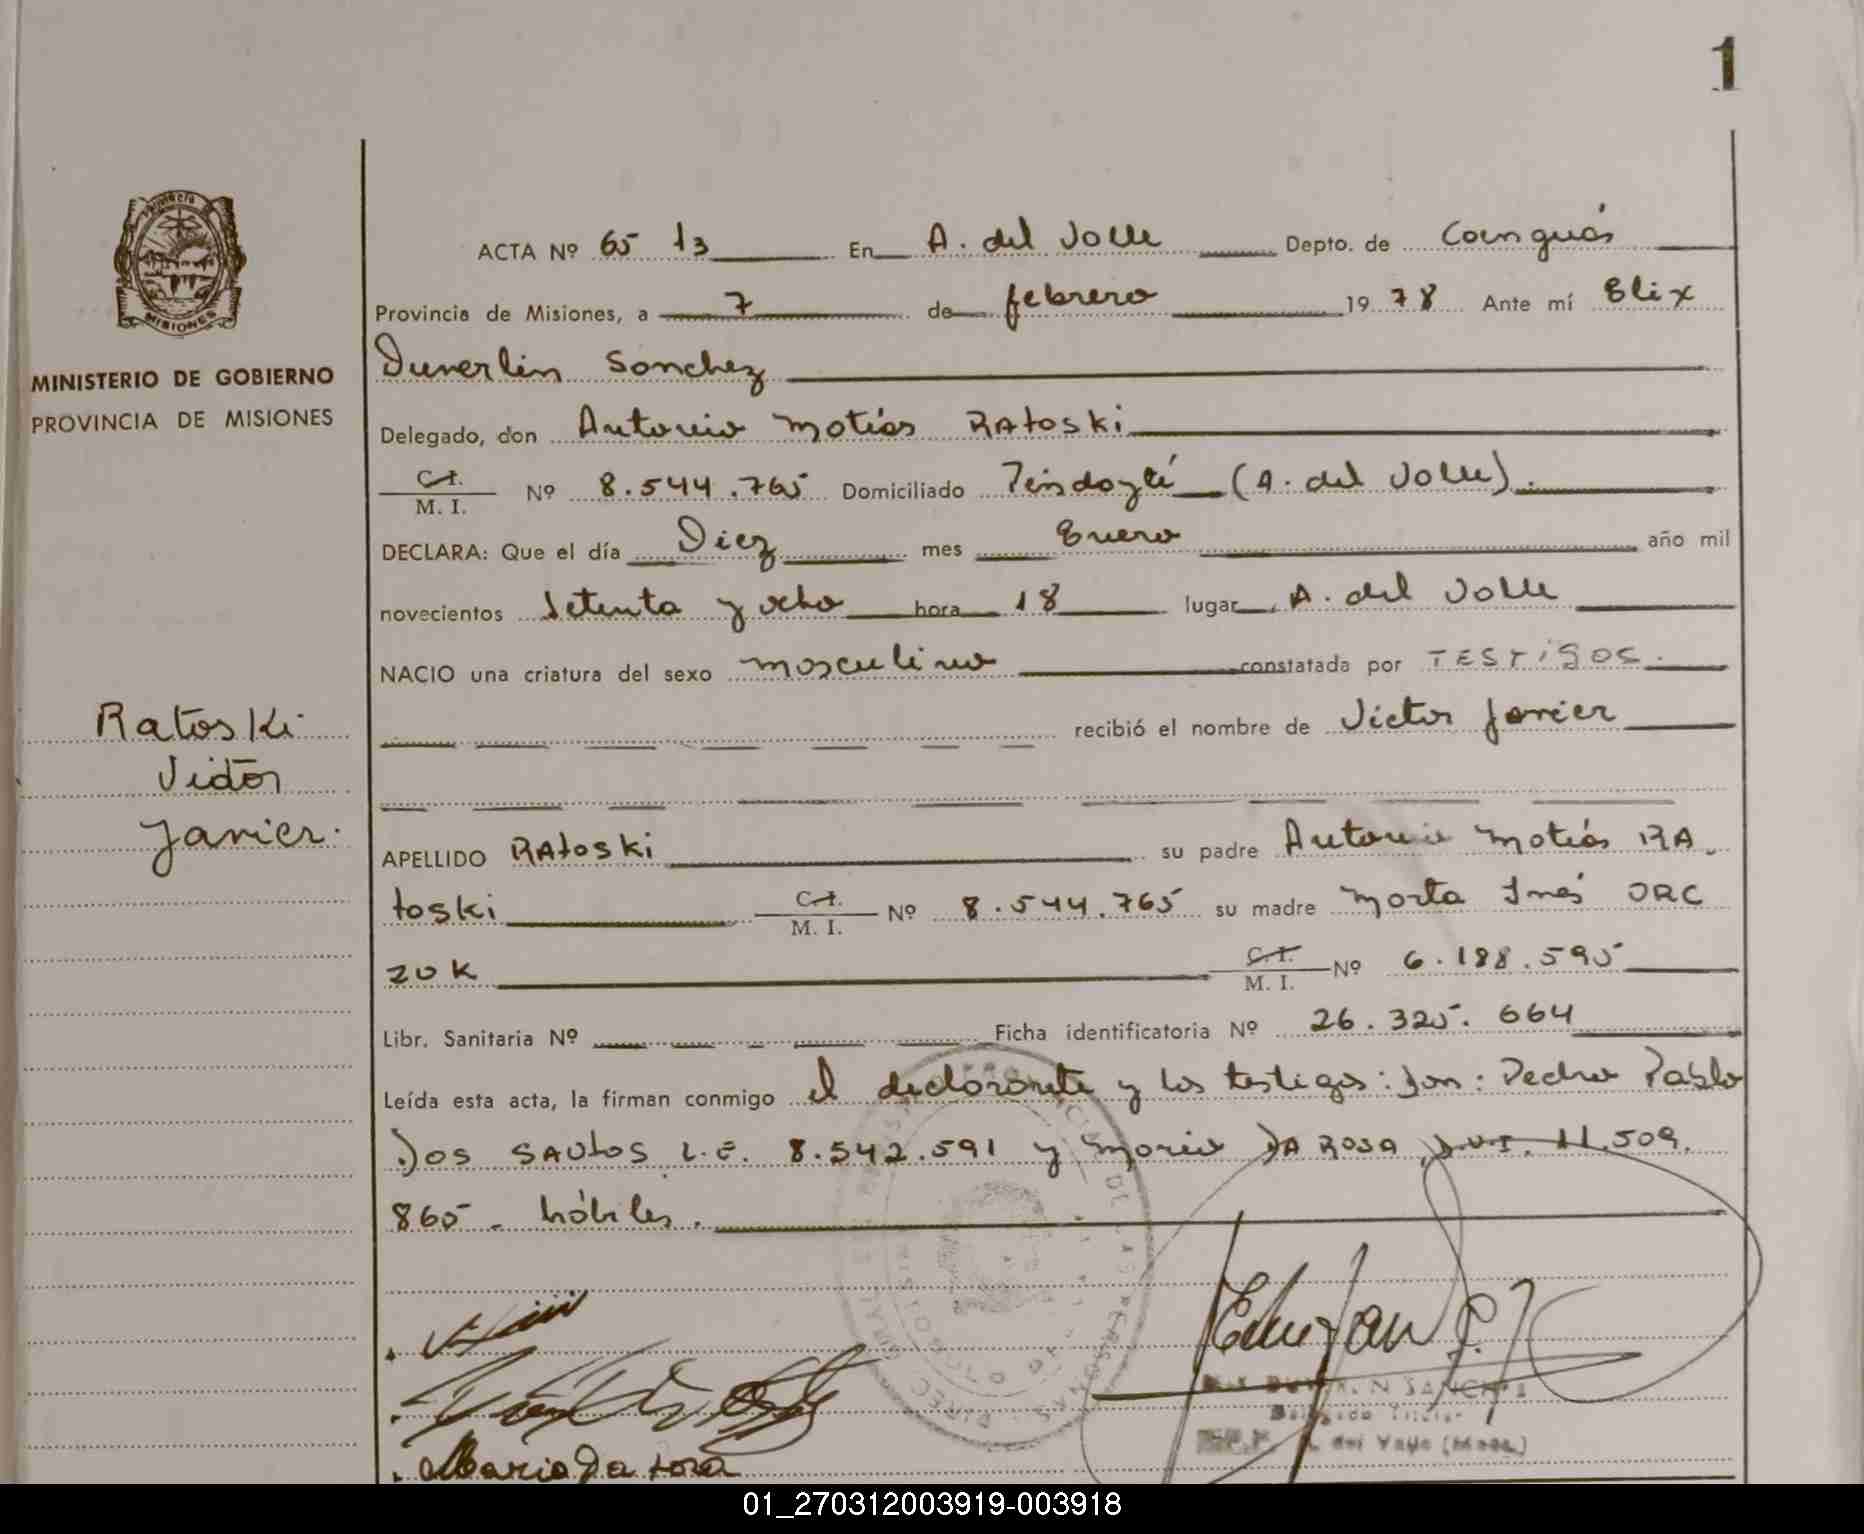 1
PROVINCIA
MISIONES
MINISTERIO DE GOBIERNO
PROVINCIA DE MISIONES
Ratoski
Victor
Javier.
ACTA Nº 65 13 En A. del Valle Depto. de Cainguás
Provincia de Misiones, a 7 de febrero 1978 Ante mí Elix
Duverlin Sanchez
Delegado, don Antonio Matías RAtoski
C.I.
M. I. Nº 8.544.765 Domiciliado Pindaytí (A. del Valle).
DECLARA: Que el día Diez mes Enero año mil
novecientos setenta y ocho hora 18 lugar A. del Valle
NACIO una criatura del sexo masculino constatada por TESTIGOS.
recibió el nombre de Victor Javier
APELLIDO RAtoski su padre Antonio Matías RA
toski C.I. M. I. Nº 8.544.765 su madre Marta Inés ORC
ZUK C.I. M. I. Nº 6.188.595
Libr. Sanitaria Nº Ficha identificatoria Nº 26.325.664
Leída esta acta, la firman conmigo el declarante y los testigos: don: Pedro Pablo
Dos SAntos L.E. 8.542.591 y Mario DA ROSA D.N.I. 11.509.
865 - hábiles.
Mario Da rosa
SANCHEZ
Delegado Titular
del Valle (Mnes.)
01_270312003919-003918